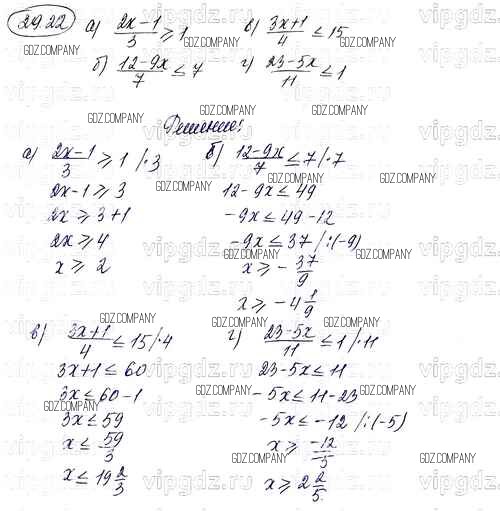 29.22 а) (2x-1)/3 ≥ 1 в) (3x+1)/4 ≤ 15
б) (12-9x)/7 ≤ 7 г) (23-5x)/11 ≤ 1
Решение:
а) (2x-1)/3 ≥ 1 /·3
2x-1 ≥ 3
2x ≥ 3+1
2x ≥ 4
x ≥ 2
б) (12-9x)/7 ≤ 7 /·7
12-9x ≤ 49
-9x ≤ 49-12
-9x ≤ 37 /:(-9)
x ≥ -37/9
x ≥ -4 1/9
в) (3x+1)/4 ≤ 15 /·4
3x+1 ≤ 60
3x ≤ 60-1
3x ≤ 59
x ≤ 59/3
x ≤ 19 2/3
г) (23-5x)/11 ≤ 1 /·11
23-5x ≤ 11
-5x ≤ 11-23
-5x ≤ -12 /:(-5)
x ≥ -12/-5
x ≥ 2 2/5
GDZ.COMPANY
vipgdz.ru